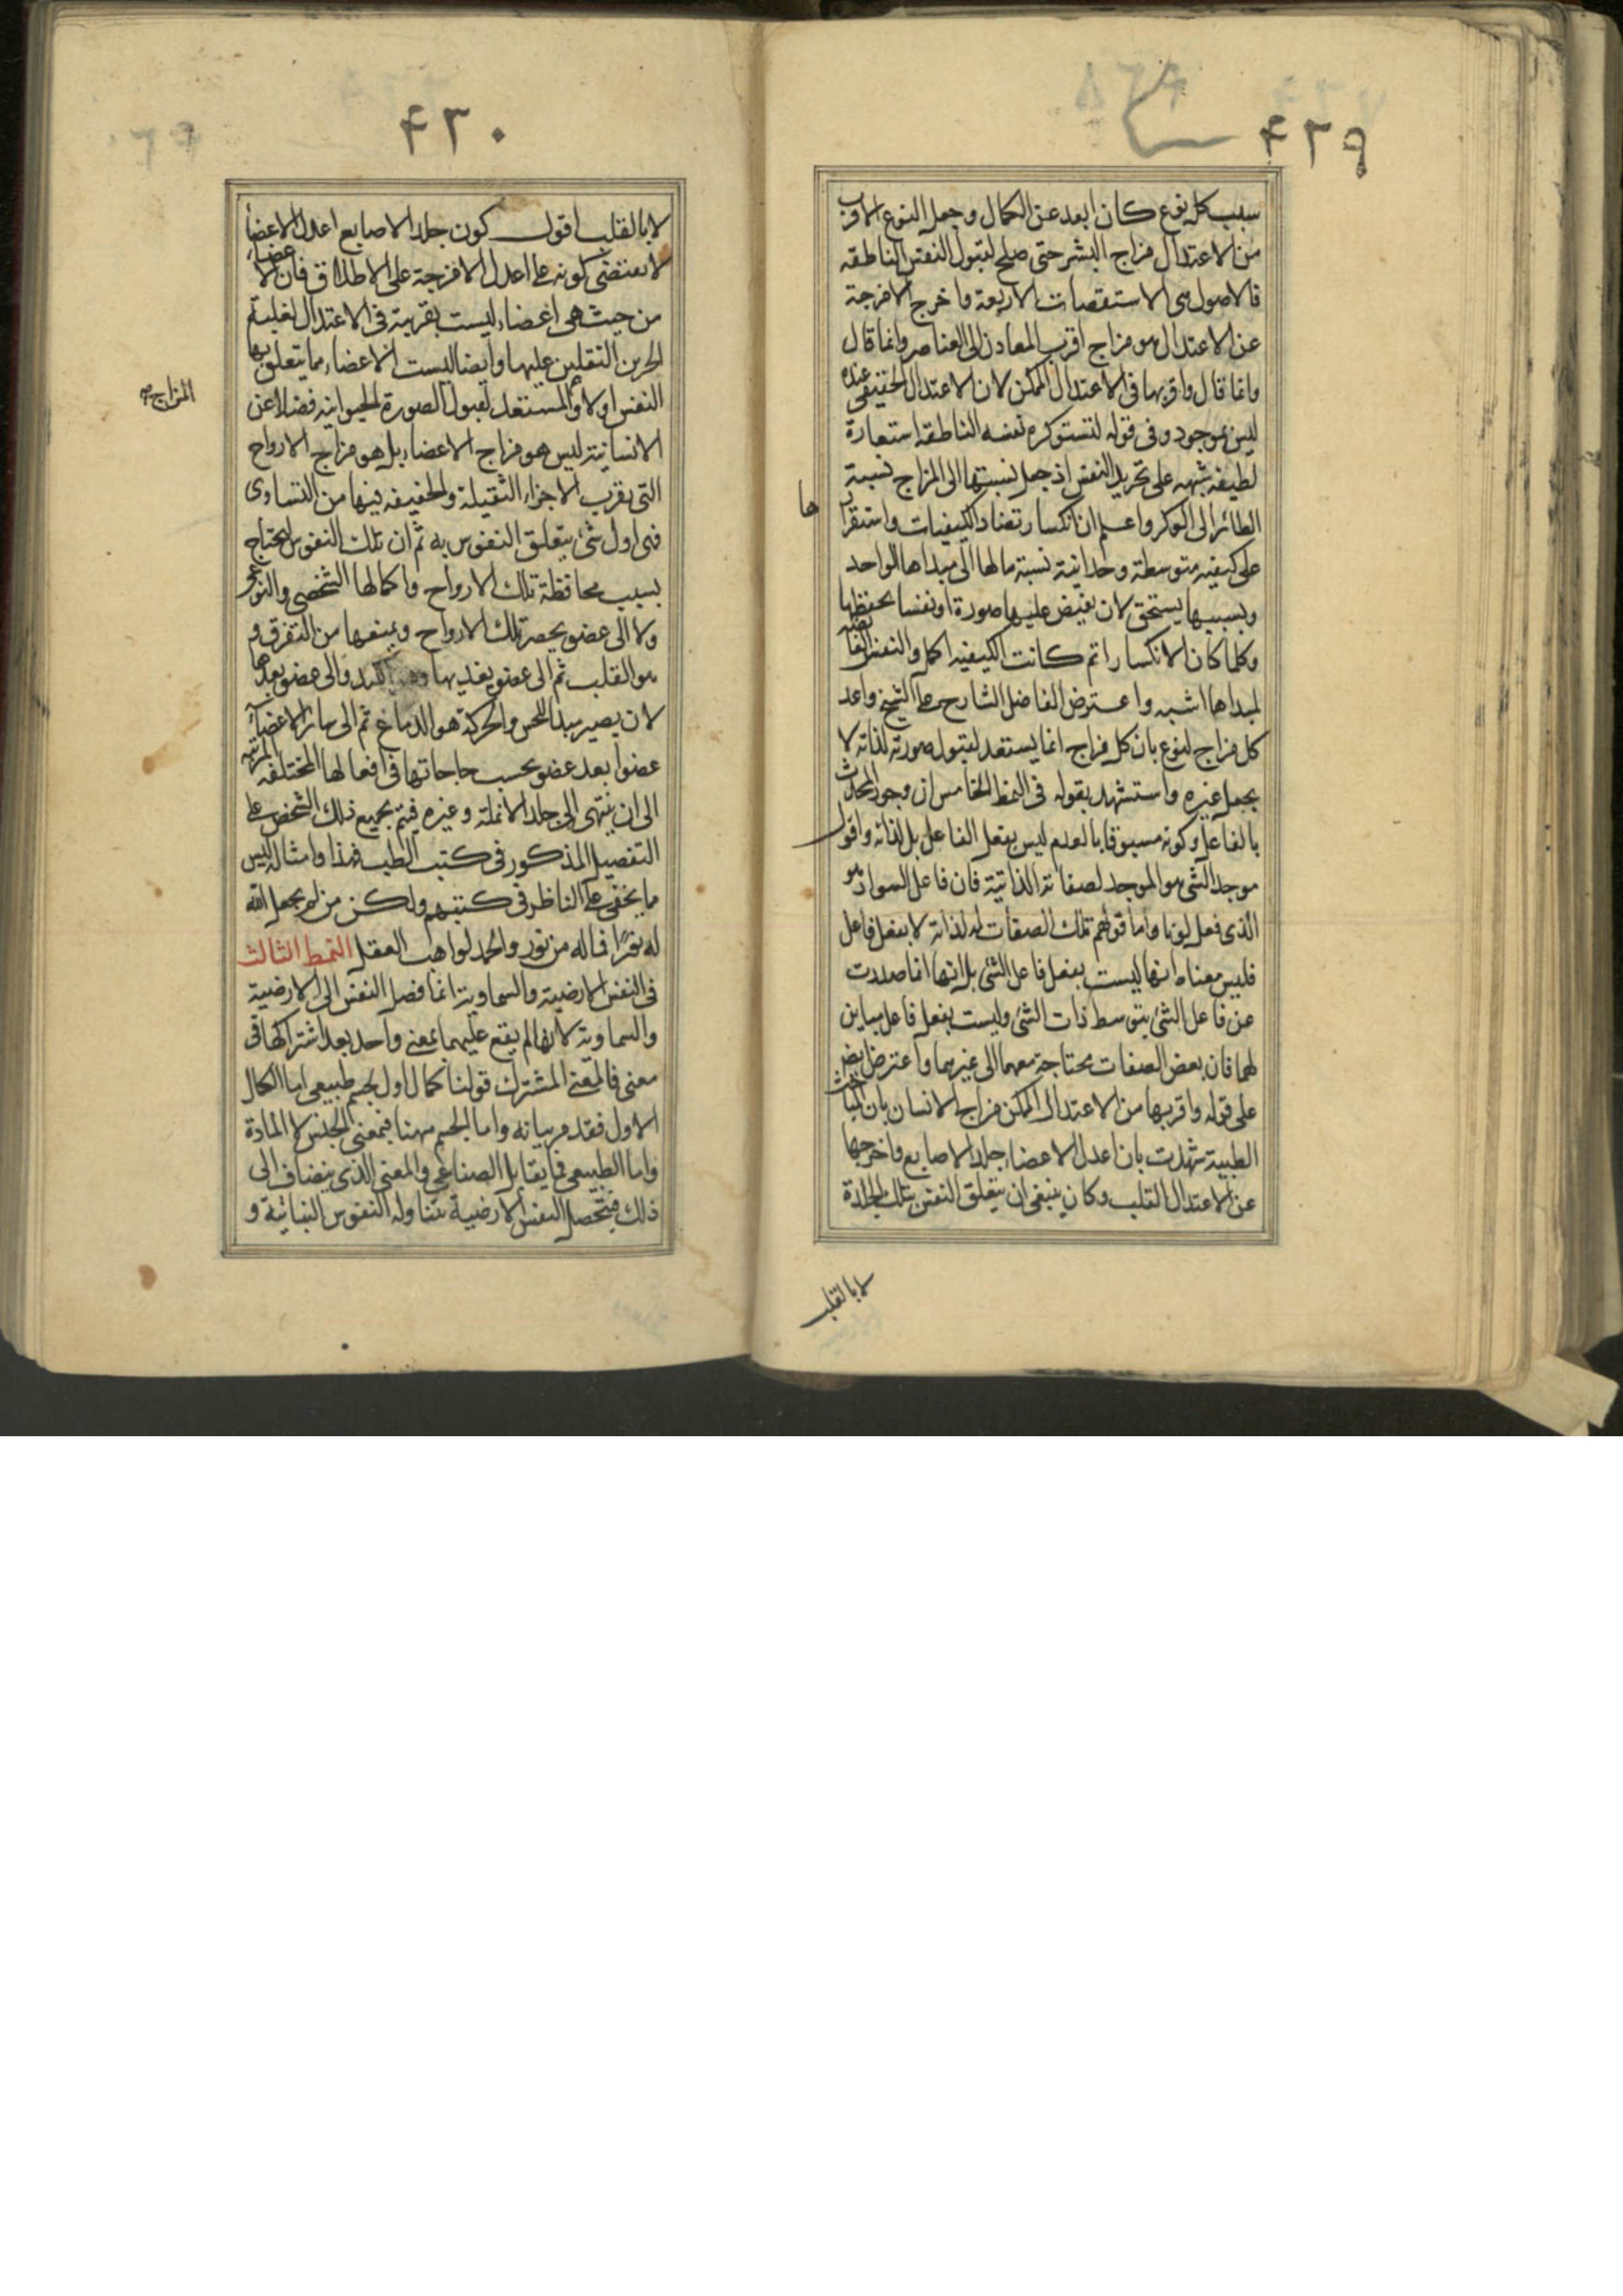 ۴۲۹
سبب كل نوع كان ابعد عن الكمال وجعل النوع الاقرب
من الاعتدال مزاج البشر حتى صلح لقبول النفس الناطقه
فالاصول هى الاستقصات الاربعة واخرج الامزجة
عن الاعتدال هو مزاج اقرب المعادن الى العناصر وانما قال
وانما قال واقربها فى الاعتدال الممكن لان الاعتدال الحقيقى عنده
ليس بموجود وفى قوله لتستوكره نفسه الناطقه استعارة
لطيفه منبهه على تجريد النفس اذ جعل نسبتها الى المزاج نسبة
الطائر الى الوكر واعلم ان انكسار تضاد الكيفيات واستقرا
ها
على كيفيه متوسطة وحدانية نسبة مالها الى مبداها الواحد
وبسببها يستحق لان يفيض عليها صورة او نفسا يحفظها
وكلما كان الانكسار اتم كانت الكيفيه اكمل والنفس الفائضه
لمبداها اشبه واعترض الفاضل الشارح على الشيخ واعد
كل مزاج لنوع بان كل مزاج انما يستعد لقبول صورته لذاته لا
بجعل غيره واستشهد بقوله فى النمط الخامس ان وجود المحدث
بالفاعل وكونه مسبوقا بالعدم ليس بفعل الفاعل بل لذاته واقول
موجد الشئ هو الموجد لصفاته الذاتية فان فاعل السواد هو
الذى فعل لونا واما قولهم تلك الصفات له لذاته لا بفعل فاعل
فليس معناه انها ليست بفعل فاعل الشئ بل انها انما صدرت
عن فاعل الشئ بتوسط ذات الشئ وليست بفعل فاعل مباين
لهما فان بعض الصفات محتاجة معهما الى غيرهما واعترض ايضا
على قوله واقربها من الاعتدال الممكن مزاج الانسان بان المباحث
الطبية شهدت بان اعدل الاعضاء جلد الاصابع واخرجها
عن الاعتدال القلب وكان ينبغى ان يتعلق النفس بتلك الجلدة
لا بالقلب
۴۳۰
لا بالقلب اقول كون جلد الاصابع اعدل الاعضاء
لا يقتضى كونه على اعدل الامزجة على الاطلاق فان الاعضاء
من حيث هى اعضاء ليست بقريبة فى الاعتدال لغلبة
الجزئين الثقلين عليها وايضا ليست الاعضاء مما يتعلق بها
النفس اولا والمستعد لقبول الصورة الحيوانيه فضلا عن
المزاج
الانسانية ليس هو مزاج الاعضاء بل هو مزاج الارواح
التى يقرب الاجزاء الثقيلة والخفيفه فيها من التساوى
فهى اول شئ يتعلق النفوس به ثم ان تلك النفوس تحتاج
بسبب محافظة تلك الارواح واكمالها الشخصى والنوعى
ولا الى عضو يحصر تلك الارواح ويمنعها من التفرق و
هو القلب ثم الى عضو يغذيها وهو الكبد والى عضو يعدها
لان يصير مبدأ للحس والحركة هو الدماغ ثم الى سائر الاعضاء
عضوا بعد عضو بحسب حاجاتها فى افعالها المختلفه المرتبه
الى ان ينتهى الى جلد الانملة وغيره فيتم بجميع ذلك الشخص على
التفصيل المذكور فى كتب الطب فهذا وامثاله ليس
مما يخفى على الناظر فى كتبهم ولكن من لم يجعل الله
له نورا فما له من نور والحمد لواهب العقل النمط الثالث
فى النفس الارضية والسماوية انما فصل النفس الى الارضية
والسماوية لانها لم يقع عليهما بمعنى واحد بعد اشتراكها فى
معنى فالمعنى المشترك قولنا كمال اول لجسم طبيعى اما الكمال
الاول فقد مر بيانه واما الجسم ههنا فبمعنى الجنس لا المادة
واما الطبيعى فما يقابل الصناعى والمعنى الذى ينضاف الى
ذلك فيتحصل النفس الارضية تتناوله النفوس النباتية و